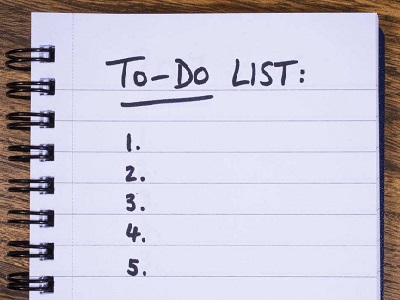 TO-DO LIST:
1.
2.
3.
4.
5.